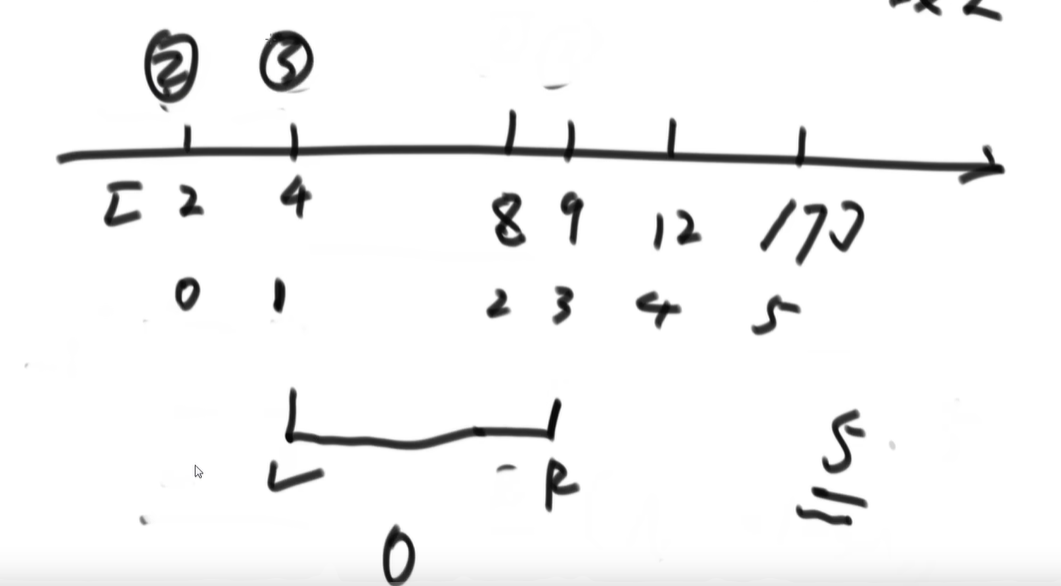 ② ③
[ 2 4 8 9 12 17]
0 1 2 3 4 5
5
L R
0